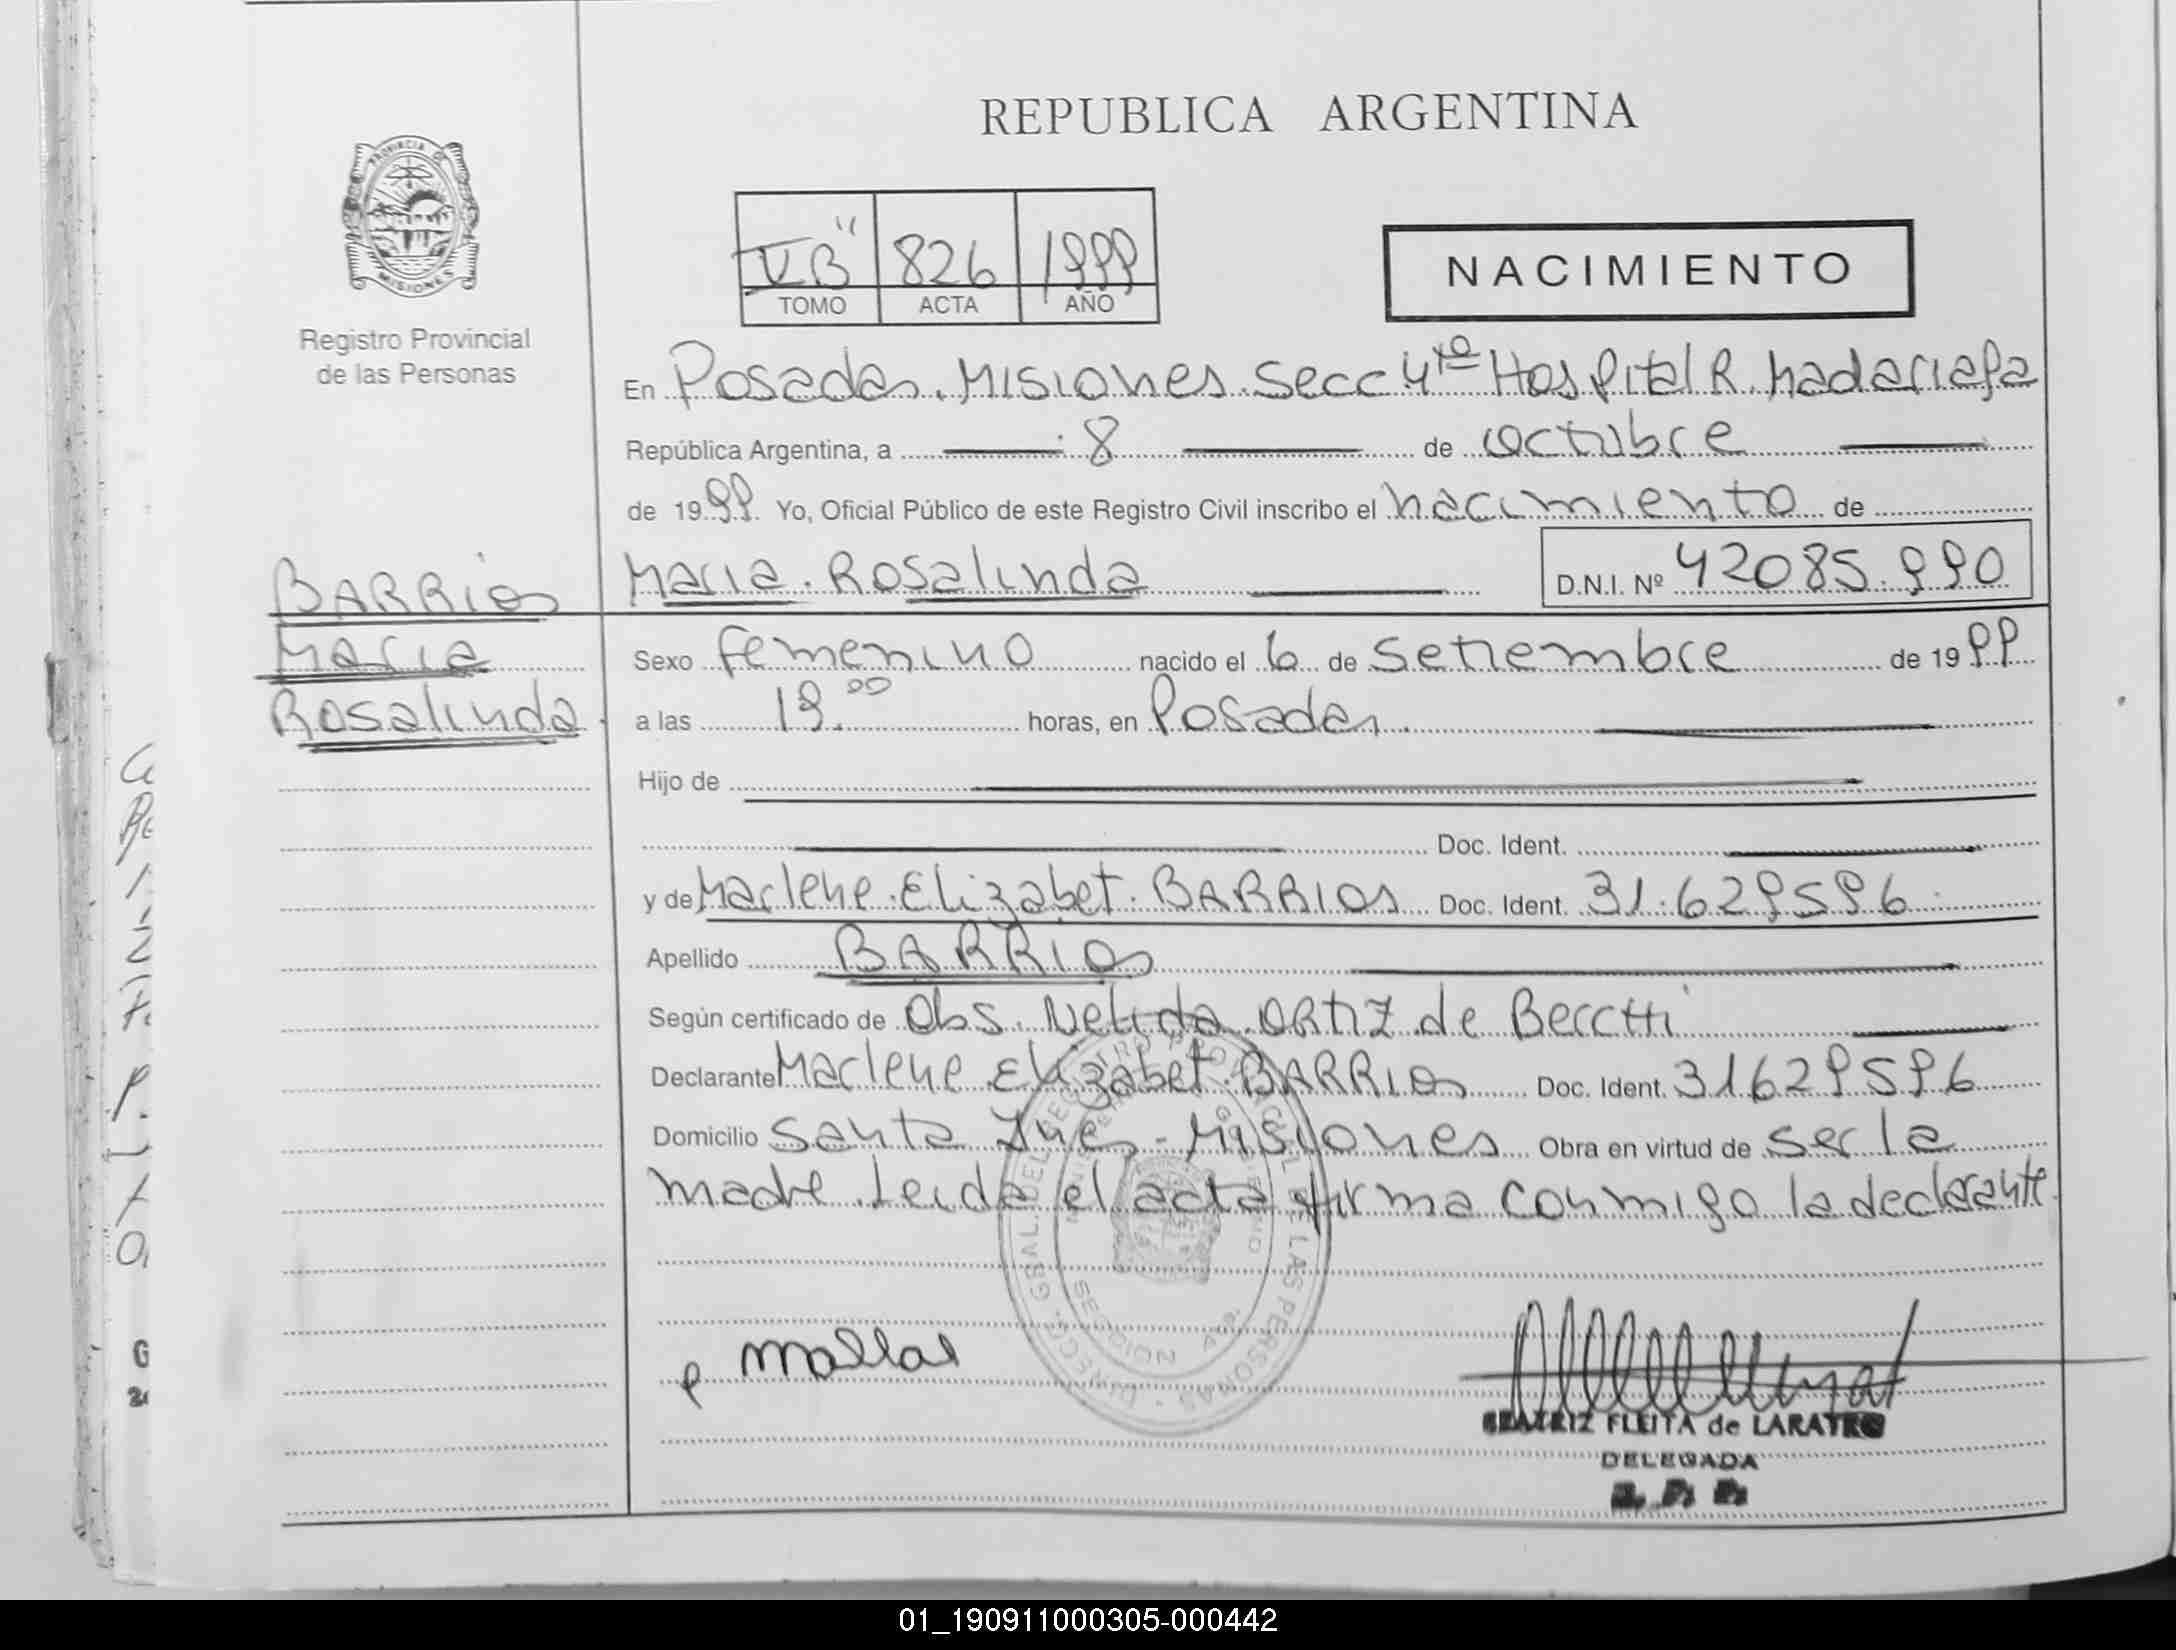 REPUBLICA ARGENTINA
PROVINCIA DE
MISIONES
Registro Provincial
de las Personas
V B" 826 1999
TOMO ACTA AÑO
NACIMIENTO
En Posadas. Misiones. Secc 4ta Hospital R. Madariaga
República Argentina, a 8 de octubre
de 1999 Yo, Oficial Público de este Registro Civil inscribo el nacimiento de
Maria. Rosalinda D.N.I. Nº 42085.990
BARRios
Maria
Rosalinda
Sexo femenino nacido el 6 de setiembre de 1999
a las 19.00 horas, en Posadas.
Hijo de
Doc. Ident.
y de Marlene. Elizabet. BARRIOS Doc. Ident. 31.629596
Apellido BARRIOS
Según certificado de Obs. Nelida ORTIZ de
Declarante Marlene Elizabet. BARRIOS Doc. Ident. 31629596
Domicilio Santa Ines - Misiones Obra en virtud de ser la
madre. Leida el acta firma conmigo la declarante.
DIRECC. GRAL. DEL REGISTRO PROVINCIAL DE LAS PERSONAS
SECCION 4ta
BEATRIZ FLEITA de LARATRO
DELEGADA
R. P. P.
01_190911000305-000442